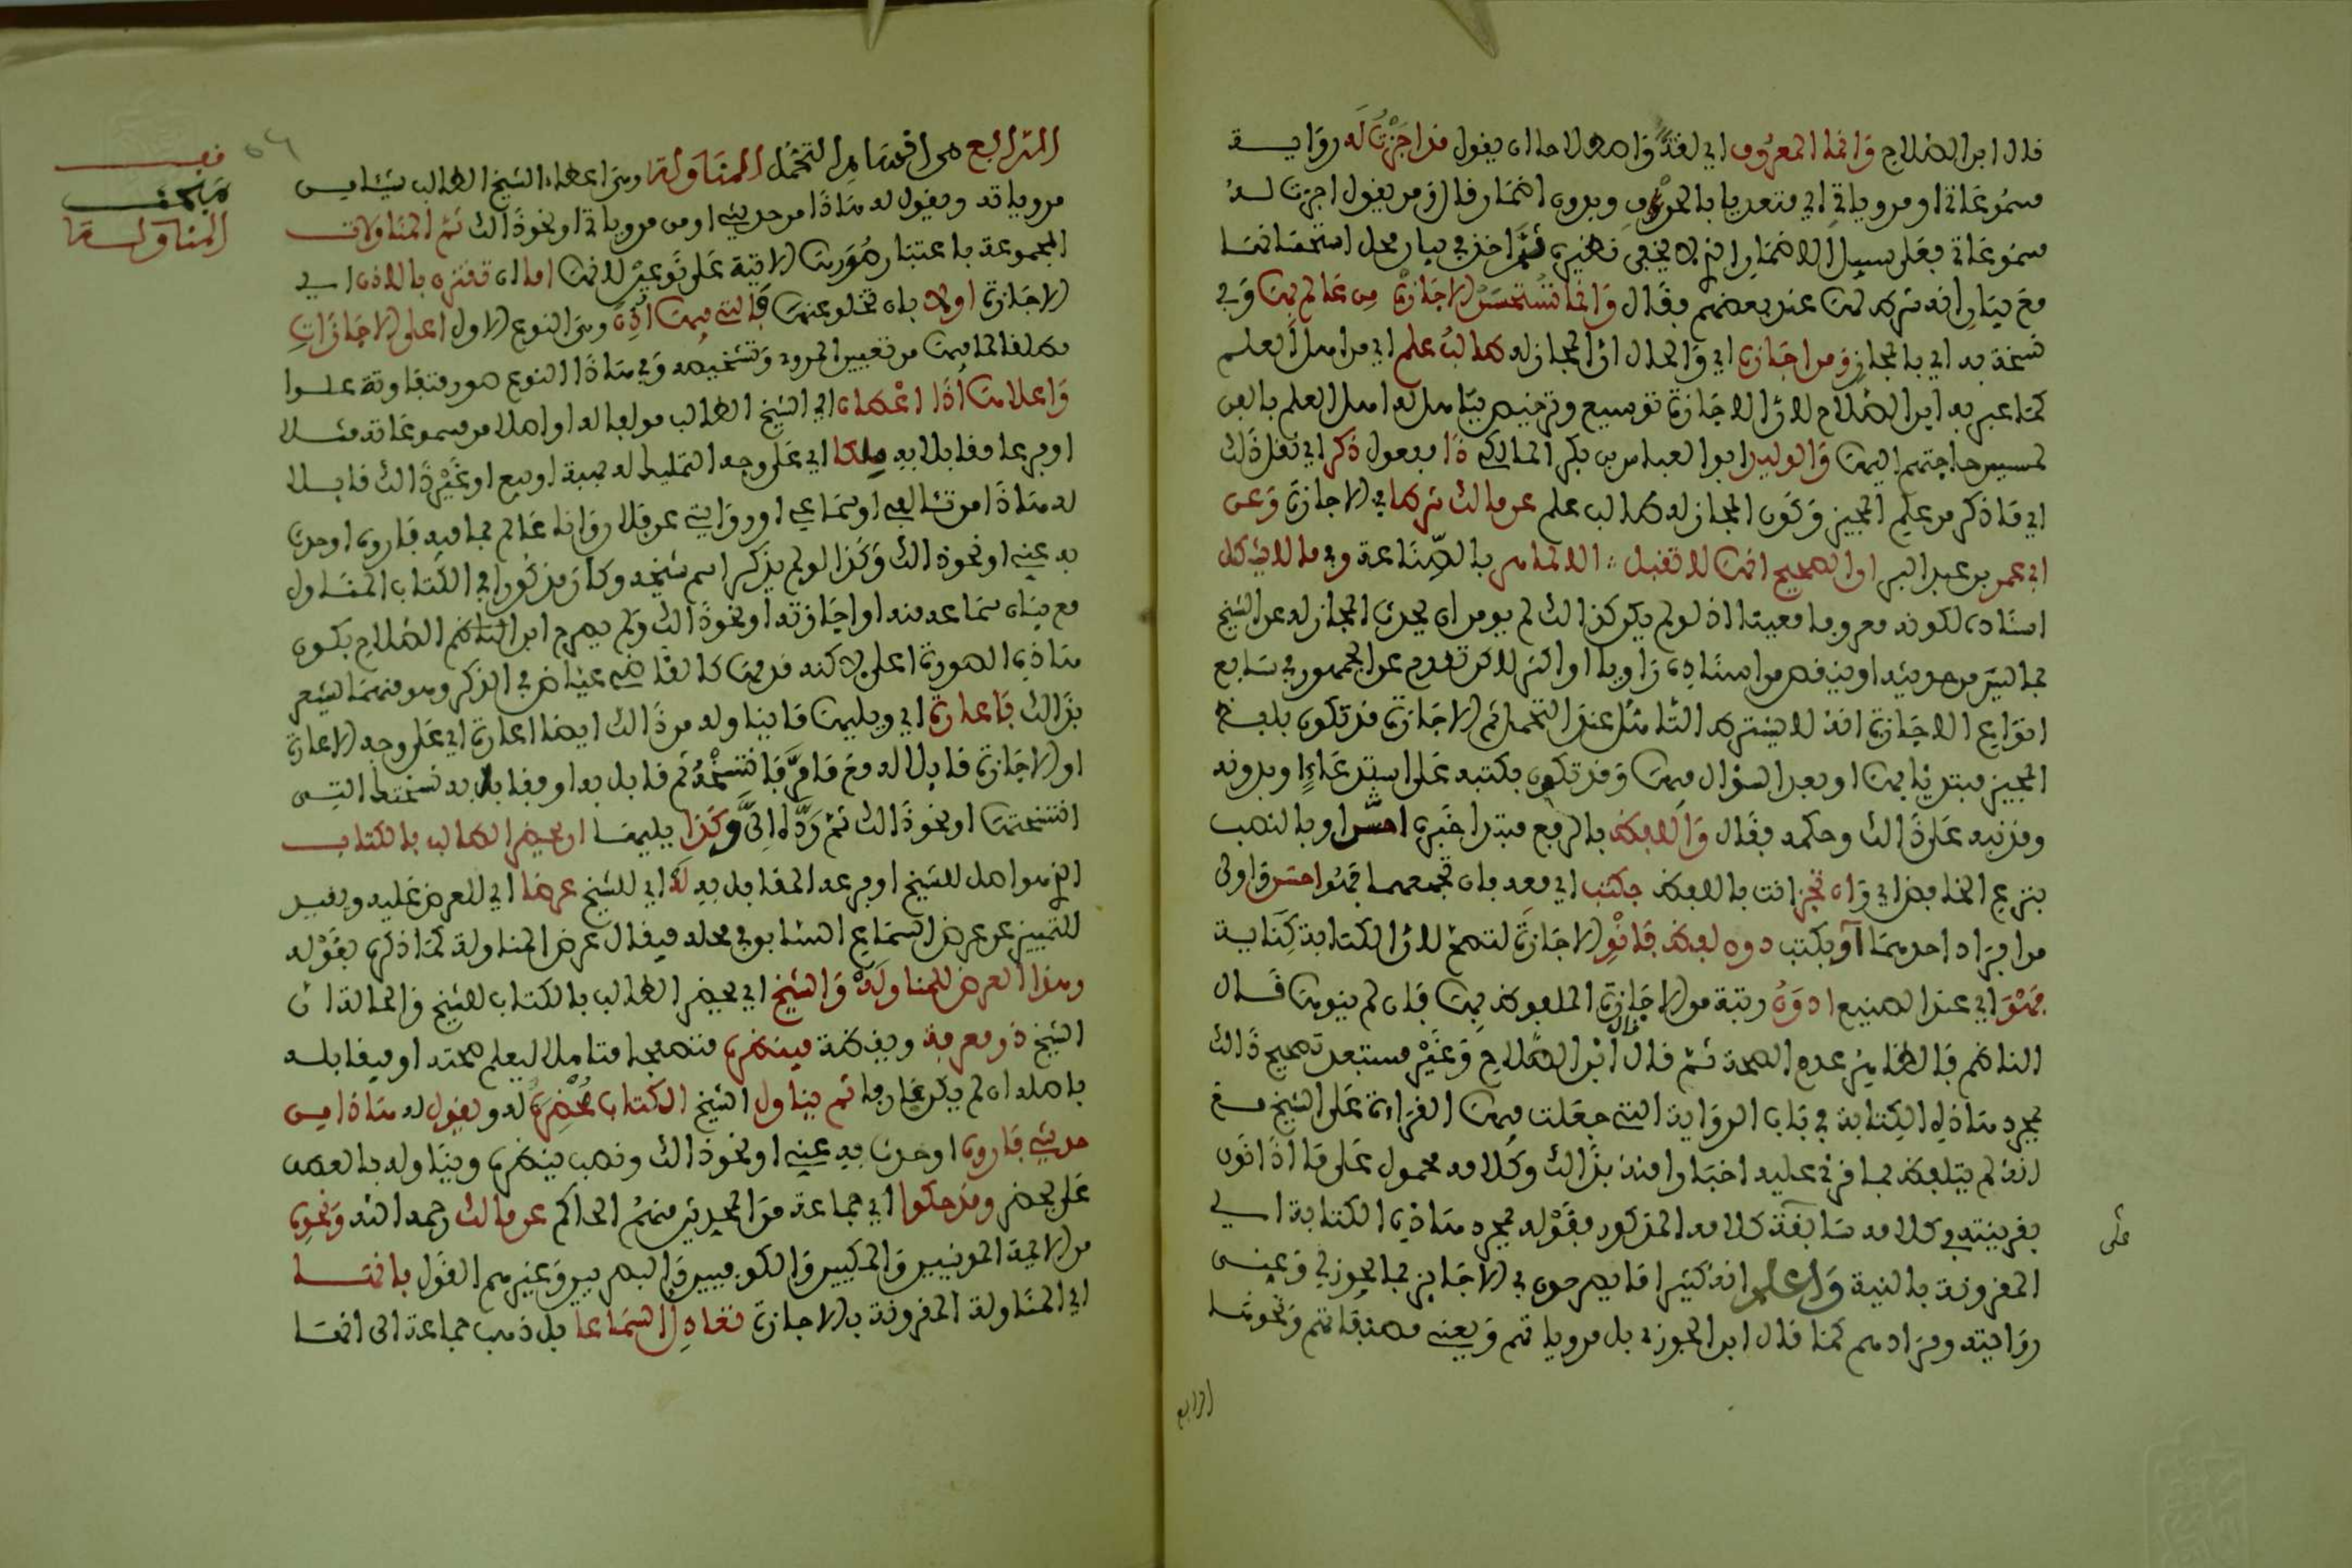 قال ابن الصلاح وَانما المعروف اي لغةً واصطلاحا ان يقول قد اجَزْتُ له رواية
مسموعاتي او مروياتي اي متعديا بالحرف وبدون اضمار قال ومن يقول اجزت له
مسموعاتي فعلى سبيل الاضمار الذي لا يخفى نظيره ثم اخذ في بيان محل استحسانها
مع بيان انه شرط لها عند بعضهم فقال وَانما تُستحسَن الاجازة من عالم بها وفي
نسخة به اي بالمجاز ومن اجازه اي والحال ان المجاز له طالب علم اي من اهل العلم
كما عبر به ابن الصلاح لان الاجازة توسيع وترخيص يتاهل له اهل العلم بالفن
لمسيس حاجتهم اليها وَالوليد ابو العباس بن بكر المالكي ذا مفعول ذكر اي نقل ذلك
اي ما ذكر من علم المجيز وكون المجاز له طالب علم عن مالك شرطا في الاجازة وعن
ابي عمر بن عبد البر ان الصحيح انها لا تقبل الا لماهر بالصناعة وفي ما لا يشكل
اسناده لكونه معروفا معينا اذ لو لم يكن كذلك لم يومن ان يحدث المجاز له عن الشيخ
بما ليس من حديثه او ينقص من اسناده راويا او اكثر لاكن تقدم عن الجمهور في سابع
انواع الاجازة انه لا يشترط التاهل عند التحمل ثم الاجازة قد تكون بلفظ
المجيز مبتديا بها او بعد السؤال فيها وقد تكون بكتبه على استدعاءٍ او بدونه
وقد نبه على ذلك وحكمه فقال وَاللفظ بالرفع مبتدا خبره احسن او بالنصب
بنزع الخافض اي وان تجز انت باللفظ بكتب اي معه بان تجمعهما فهو احسن واولى
من افراد احدهما او بكتب دون لفظ فانْوِ الاجازة لتصح لان الكتابة كناية
فهْوَ اي عند الصنيع ادون رتبة من الاجازة الملفوظ بها فان لم ينوها قال
الناظم فالظاهر عدم الصحة ثم قال قال ابن الصلاح وغير مستبعد تصحيح ذلك
بمجرد هذه الكتابة في باب الرواية التي جعلت فيها القراءة على الشيخ مع
انه لم يتلفظ بما قرئ عليه اخبارا منه بذلك وكلامه محمول على ما اذا نوى
بقرينته وكلامه سابقة كلامه المذكور فقوله بمجرد هذه الكتابة اي
على
المقرونة بالنية وَاعلم انه كثيرا ما يصرحون في الاجايز بما يجوز لي وعني
روايته ومرادهم كما قال ابن الجوزي بل مروياتهم ويعني مصنفاتهم ونحوها
الرابع
قف
مبحث
المناولة
٥٩
الرابع من اقسام التحمل المناولة وهي اعطاء الشيخ الطالب شيئا من
مروياته ويقول له هذا من حديثي او من مروياتي او نحو ذلك ثم المناولات
المجموعة باعتبار صورها الاتية على نوعين لانها اما ان تقترن بالاذن اي
الاجازة اولا بان تخلو عنها فالتي فيها اذن وهي النوع الاول اعلى الاجازات
مطلقا لما فيها من تعيين المروي وتشخيصه وفي هذا النوع صور متفاوتة علوا
وَاعلاها اذا اعطاه اي الشيخ الطالب مؤلفا له او اصلا من مسموعاته مثلا
او فرعا مقابلا به ملكا اي على وجه التمليك له بهبة او بيع او غير ذلك قايلا
له هذا من تاليفي او سماعي او روايتي عن فلان وانا عالم بما فيه فاروه او حدث
به عني او نحو ذلك وكذا لو لم يذكر اسم شيخه وكان مذكورا في الكتاب المناول
مع بيان سماعه منه او اجازته او نحو ذلك ولم يصرح ابن الصلاح بكون
هذه الصورة اعلى لاكنه قدمها كالقاضي عياض في الذكر وهو منهما يشعر
بذلك فاعارة اي ويليها ما يناوله من ذلك ايضا اعارة اي على وجه الاعارة
او الاجازة قايلا له مع ما مر فانتسخه ثم قابل به او فقابل به نسختك التي
انتسختها او نحو ذلك ثم ردّه الي وكذا يليهما ان يحضر الطالب بالكتاب
الذي هو اصل للشيخ او فرعه المقابل به له اي للشيخ عرضا اي للعرض عليه ويقيد
للتمييز عن عرض السماع السابق في محله فيقال عرض المناولة كما ذكره بقوله
وهذا العرض للمناولة وَالشيخ اي يحضر الطالب بالكتاب للشيخ والحالة ان
الشيخ ذو معرفة ويقظة فينظره متصفحا متاملا ليعلم صحته او يقابله
باصله ان لم يكن عارفا ثم يناول الشيخ الكتاب مُحْضِرَهُ له ويقول له هذا من
حديثي فاروه او حدث به عني او نحو ذلك ونصب ينظره ويناوله بالعطف
على يحضر وقد حكوا اي جماعة من المحدثين منهم الحاكم عن مالك رحمه الله ونحوه
من الايمة المدنيين والمكيين والكوفيين والبصريين وغيرهم القول بانها
اي المناولة المقرونة بالاجازة تعادل السماعا بل ذهب جماعة الى انها